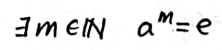 ∃m∈ℕ aᵐ=e